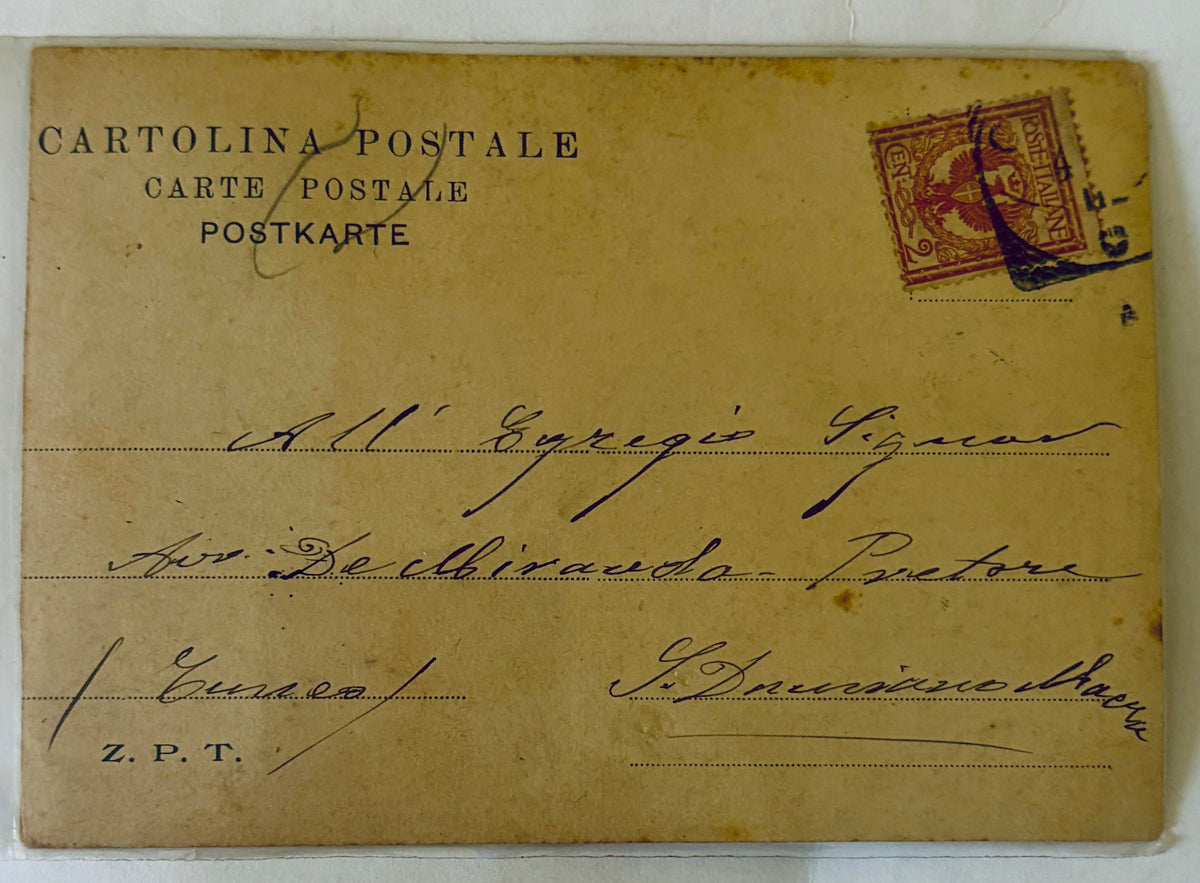 CARTOLINA POSTALE
CARTE POSTALE
POSTKARTE
POSTE·ITALIANE
CEN 2
All' Egregio Signor
Avv. De Miranda - Pretore
(Cuneo)
S. Damiano Macra
Z. P. T.